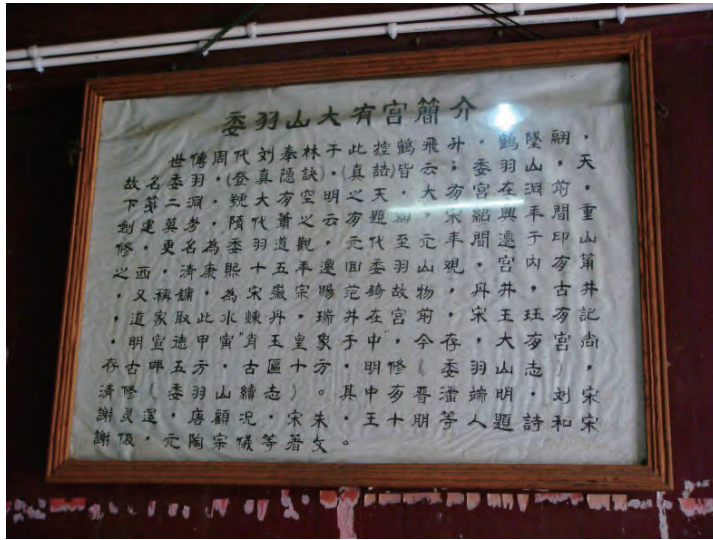 委羽山大有宮簡介
世傳周代刘奉林于此控鶴飛升，鶴墜翮，
故名委羽，(登真隱訣)，(真誥)皆云；委羽山，天
下第二洞，號大有空明之天，大有宮在洞前，重
剏建莫考，隋代蕭之云有題，宋紹興年間山
修，更名為委羽道觀，元代至元年間遷于印
之西，清康熙十五年遷回委羽山觀，宮內有莆
，又稱鏞，為宋徽宗賜范錡故物，丹井，古井
，道家取此水煉丹，瑞井在宮前，宋王有記
，明宣德甲寅"肖玉皇象于中"，今存大有宮尚
存古碑五方，古匾十方，明修(委羽山志)
清修(委羽山續志)。其中有晋潘端明，刘宋
謝灵運，唐顧況，宋朱，王十朋等人題詩和宋
謝伋，元陶宗儀等著文。